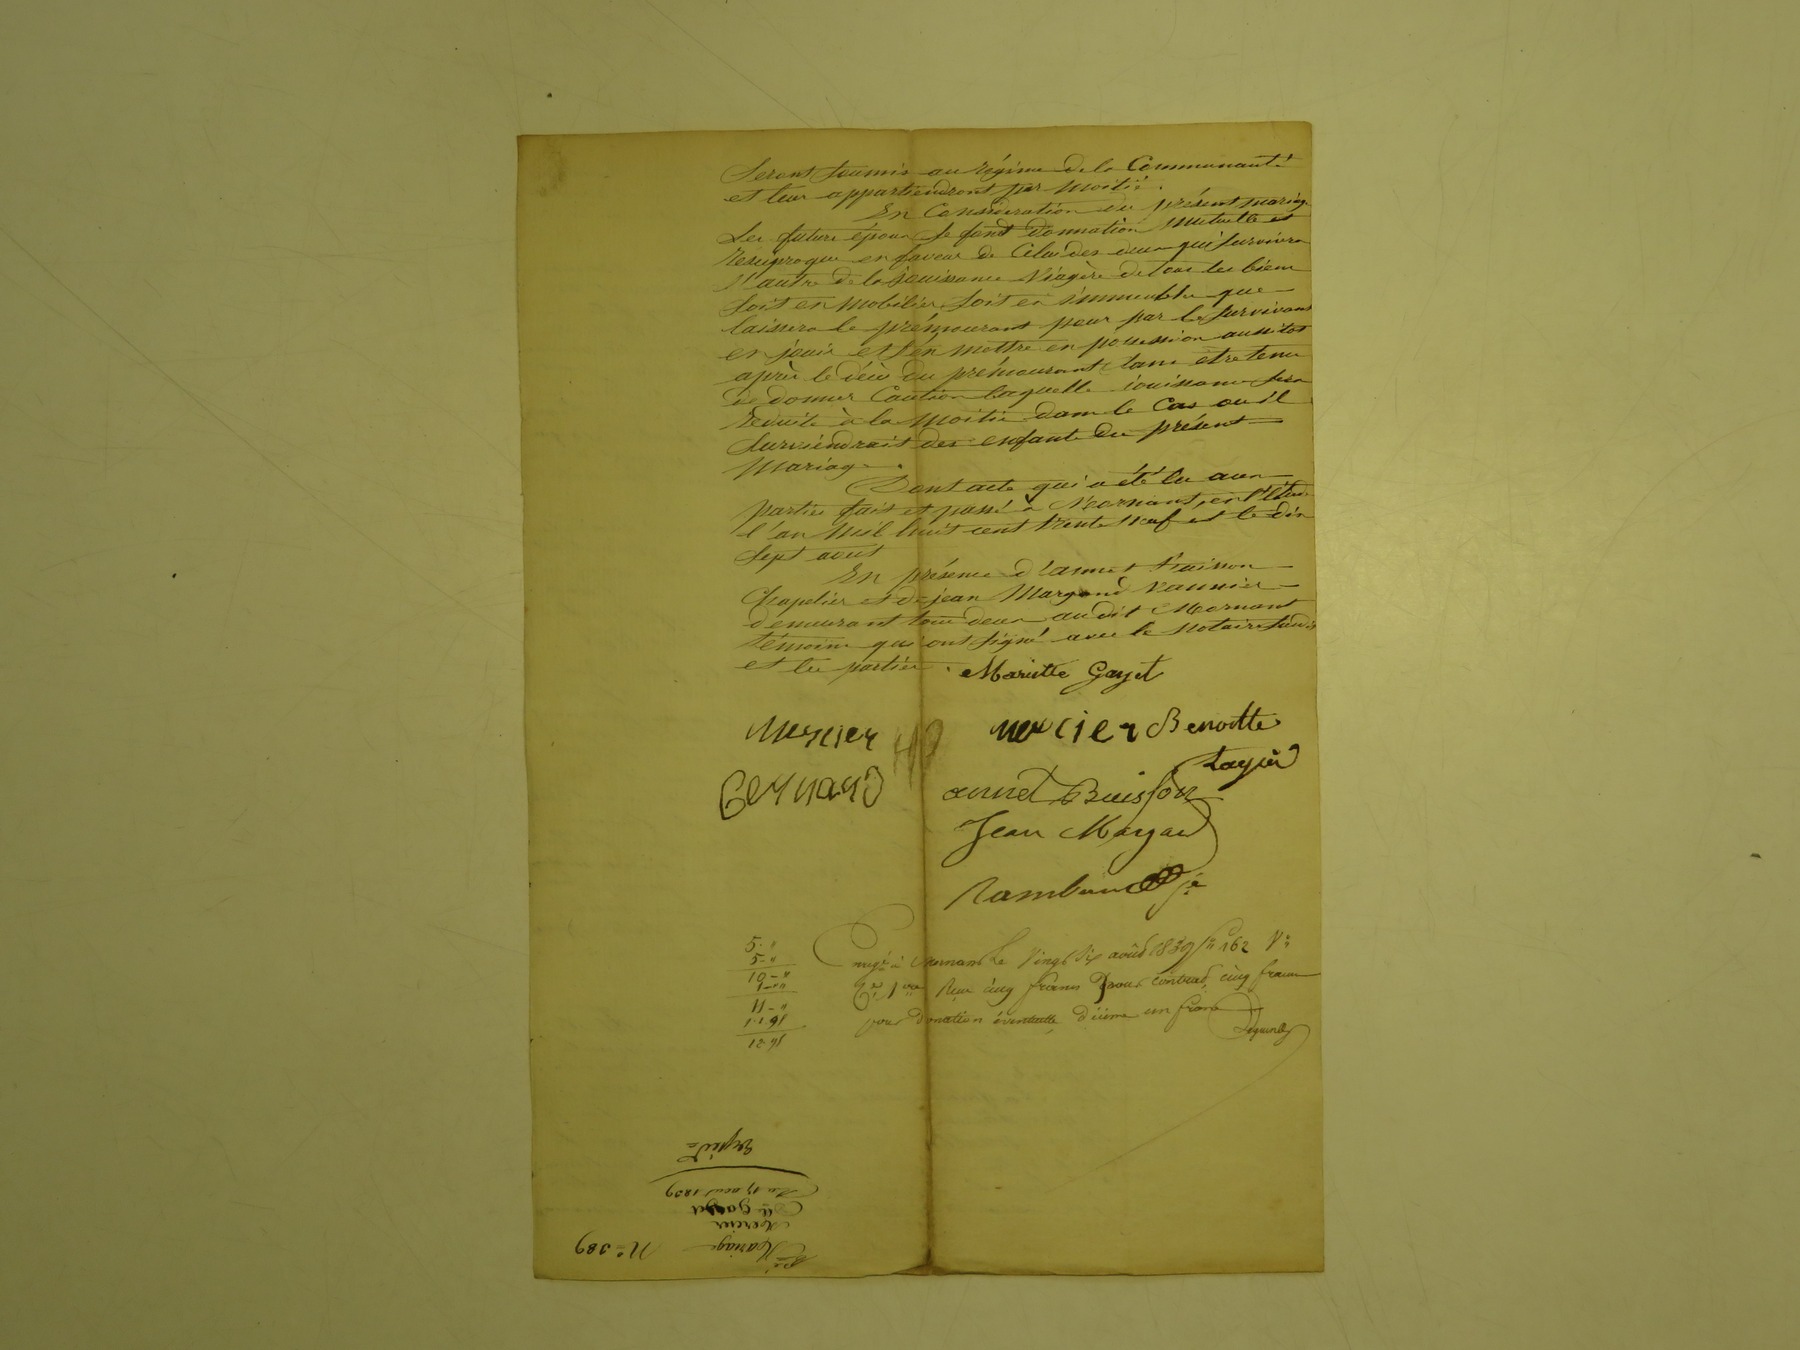 Seront soumis au régime de la Communauté
et leur appartiendront par moitié.
En Considération du présent mariage
Les futurs époux se font donnation mutuelle et
réciproque en faveur de Celui des deux qui survivra
l'autre de la jouissance viagère de tous les biens
soit en mobilier soit en immeubles que
laissera le prémourant pour par le survivant
en jouir et s'en mettre en possession aussitot
après le décès du prémourant sans être tenu
de donner Caution laquelle jouissance sera
réduite à la moitié dans le Cas ou il
surviendrait des enfants du présent
mariage.
Dont acte qui a été lu aux
parties fait et passé à Mornant, en l'étude
l'an mil huit cent trente neuf et le dix
sept aout
En présence d'annet
Chapelier et de jean Margand vannier
demeurant tous deux audit Mornant
témoins qui ont signé avec le notaire susdit
et les parties. Mariette Gayet
Mercier mercier Benoitte
Bernard
annet Buisson
Jean Margand
5-"
5-"
10-"
1-"
11-"
1-1
12-1
à Mornant Le Vingt Six août 1839 f° 162 V°
Reçu cinq francs pour contrat, cinq francs
pour donation éventuelle dixième un franc
Expéd
Du 17 aout 1839
Gayet
Mercier
Mariage
N° 389